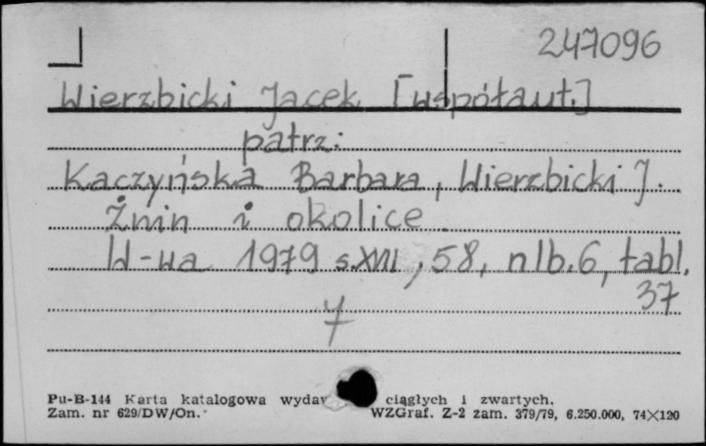 247096
Wierzbicki Jacek [współaut.]
patrz:
Kaczyńska Barbara, Wierzbicki J.
Żnin i okolice.
W-wa 1979 s. XVII, 58, nlb. 6, tabl.
37
7
Pu-B-144 Karta katalogowa wydaw ciągłych i zwartych.
Zam. nr 629/DW/On. WZGraf. Z-2 zam. 379/79, 6.250.000, 74×120